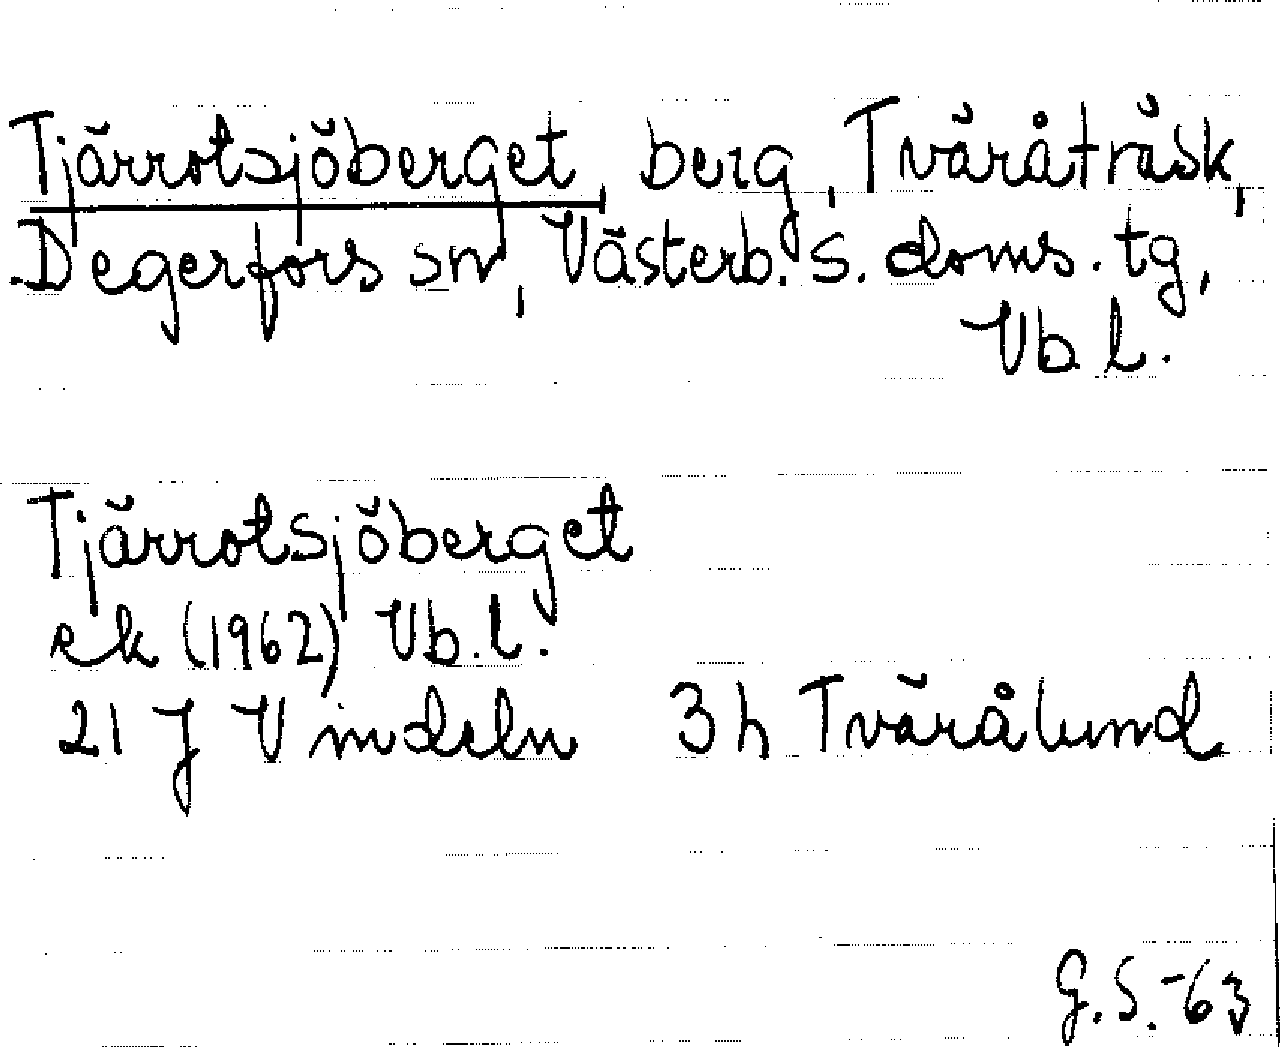 Tjärrotsjöberget, berg, Tväråträsk,
Degerfors sn, Västerb. s. doms. tg,
Vb l.
Tjärrotsjöberget
ek (1962) Vb. l.
21 J Vindeln 3h Tvärålund
G.S.-63